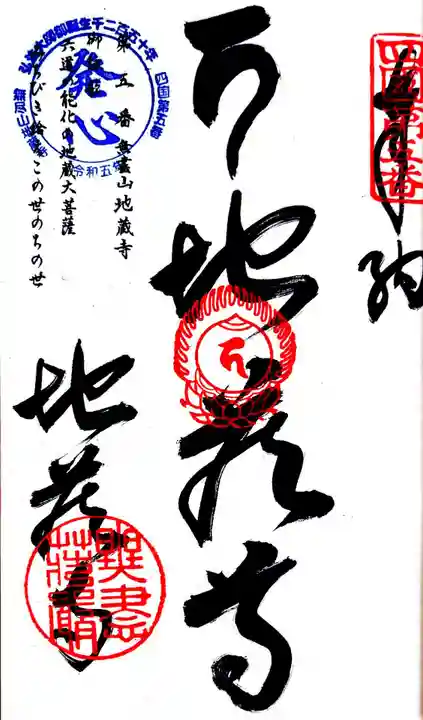 奉納
四国第五番
地蔵尊
第五番 無盡山地蔵寺
御詠歌
六道の能化の地蔵大菩薩
みちびき給へこの世のちの世
弘法大師御誕生千二百五十年 四国第五番
発心
令和五年
地蔵寺